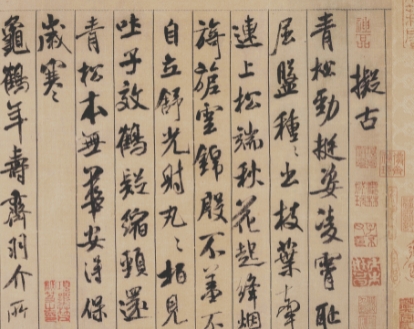 擬古
青松勁挺姿凌霄恥
屈盤種〻出枝葉牽
連上松端秋花起絳烟
旖旎雲錦殷不羞不
自立舒光射丸〻柏見
吐子效鶴疑縮頸還
青松本無華安得保
歲寒〻
龜鶴年壽齊羽介所